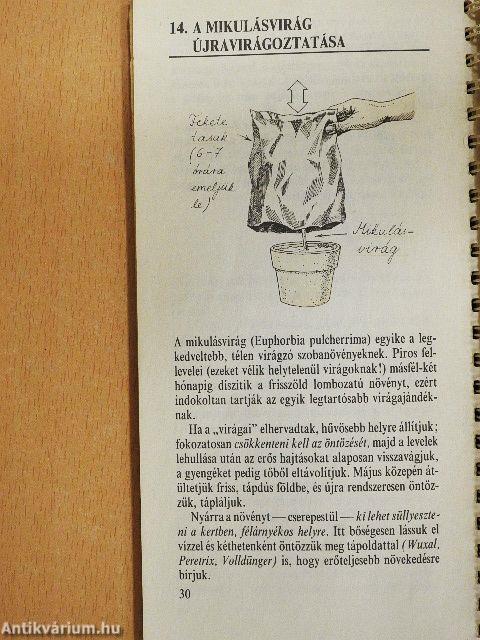 14. A MIKULÁSVIRÁG
ÚJRAVIRÁGOZTATÁSA
Fekete
tasak
(6–7
órára
emeljük
le)
Mikulás-
virág
A mikulásvirág (Euphorbia pulcherrima) egyike a leg-
kedveltebb, télen virágzó szobanövényeknek. Piros fel-
levelei (ezeket vélik helytelenül virágoknak!) másfél-két
hónapig díszítik a frisszöld lombozatú növényt, ezért
indokoltan tartják az egyik legtartósabb virágajándék-
nak.
Ha a „virágai” elhervadtak, hűvösebb helyre állítjuk;
fokozatosan csökkenteni kell az öntözését, majd a levelek
lehullása után az erős hajtásokat alaposan visszavágjuk,
a gyengéket pedig tőből eltávolítjuk. Május közepén át-
ültetjük friss, tápdús földbe, és újra rendszeresen öntöz-
zük, tápláljuk.
Nyárra a növényt — cserepestül — ki lehet süllyeszte-
ni a kertben, félárnyékos helyre. Itt bőségesen lássuk el
vízzel és kéthetenként öntözzük meg tápoldattal (Wuxal,
Peretrix, Volldünger) is, hogy erőteljesebb növekedésre
bírjuk.
30
Antikvárium.hu